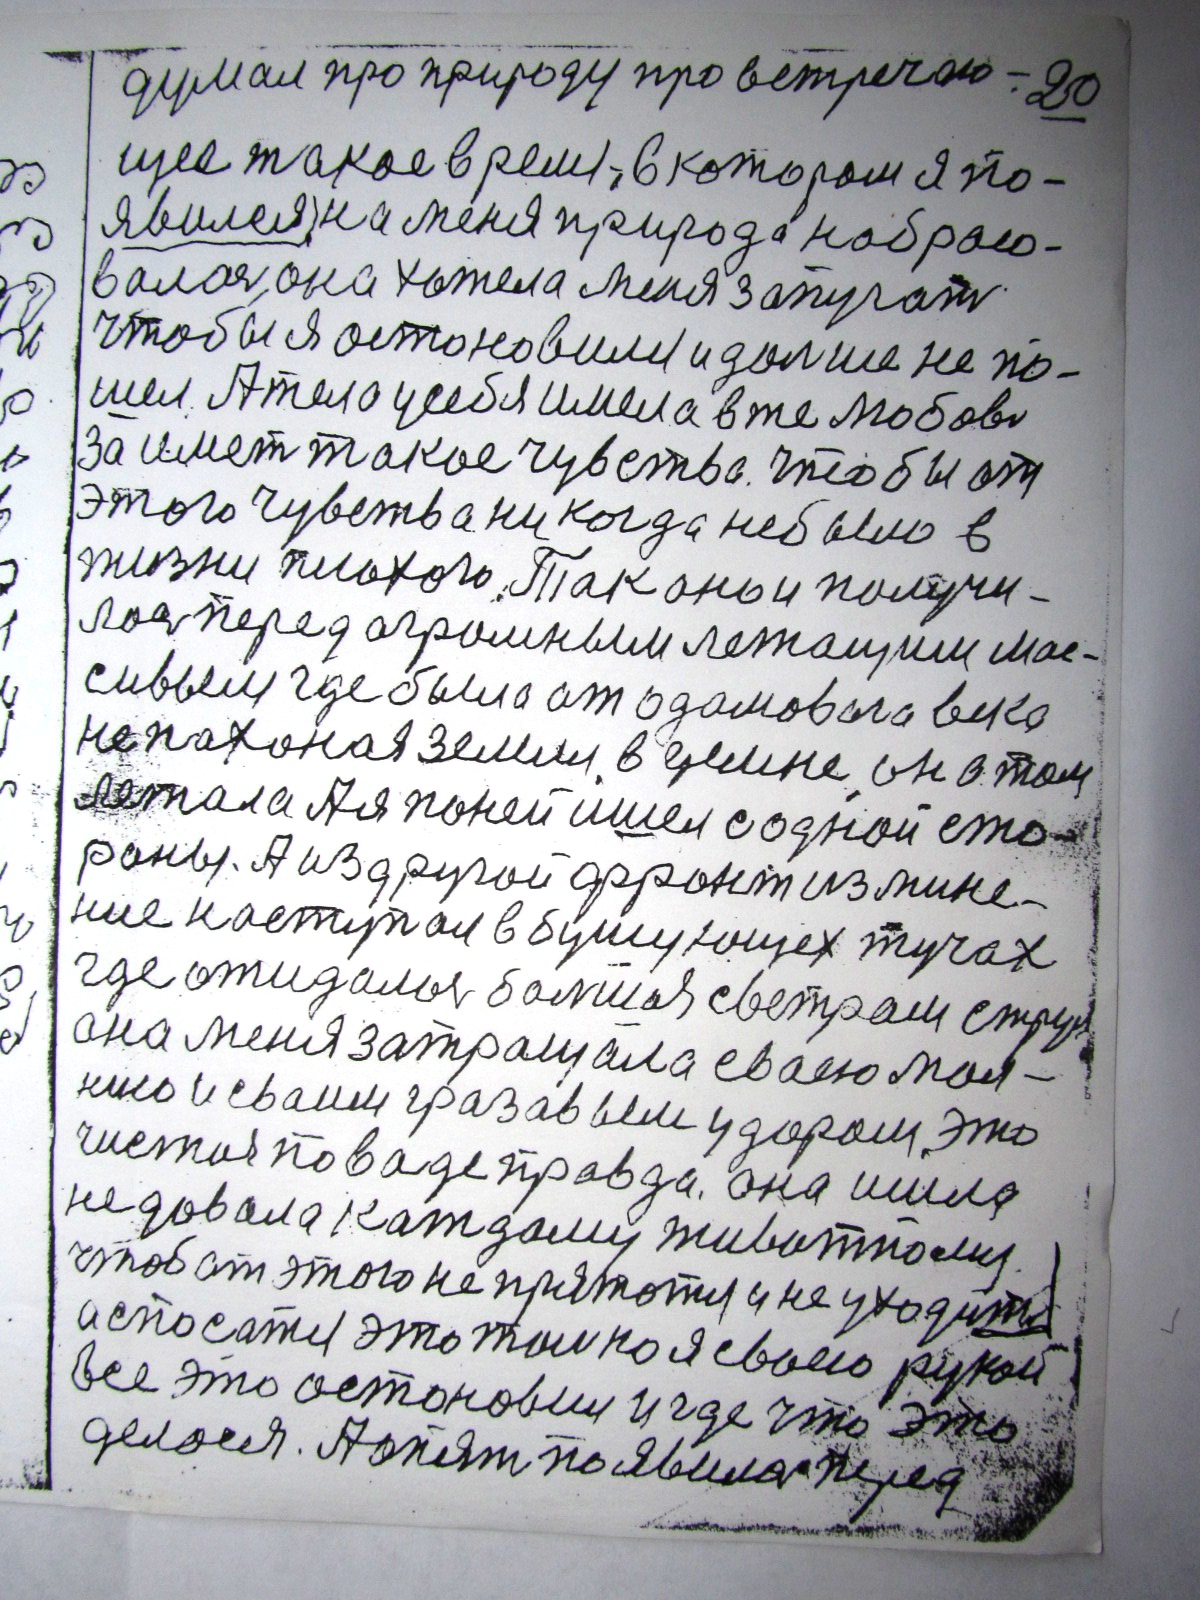 думал про природу про встречаю- 20
щее такое время, в котором я по-
явился, на меня природа набрасо-
валася, она хотела меня запугать
чтобы я остоновился и дальше не по-
шел. А тело у себя имела вже любовь
заимет такое чувства. чтобы от
этого чувства никогда не было в
жизни плохого. Так оно и получи-
лося перед огромным лежащим мас-
сивым где была от одамовага века
не паханая земля, в целине, он о том
лежала А я по ней ишел с одной сто-
роны. А из другой фронт измине-
ние наступал в бушующех тучах
где ожидался болшая светрам струя
она меня затращала сваею мол-
нию и сваим гразавым ударом, это
чистая по ваде правда. она ишла
не довала каждому животному
чтоб от этого не прятотся и не уходить
а спосатся это толко я сваею рукой
все это остоновил и где что это
делося. А опять появилася перед